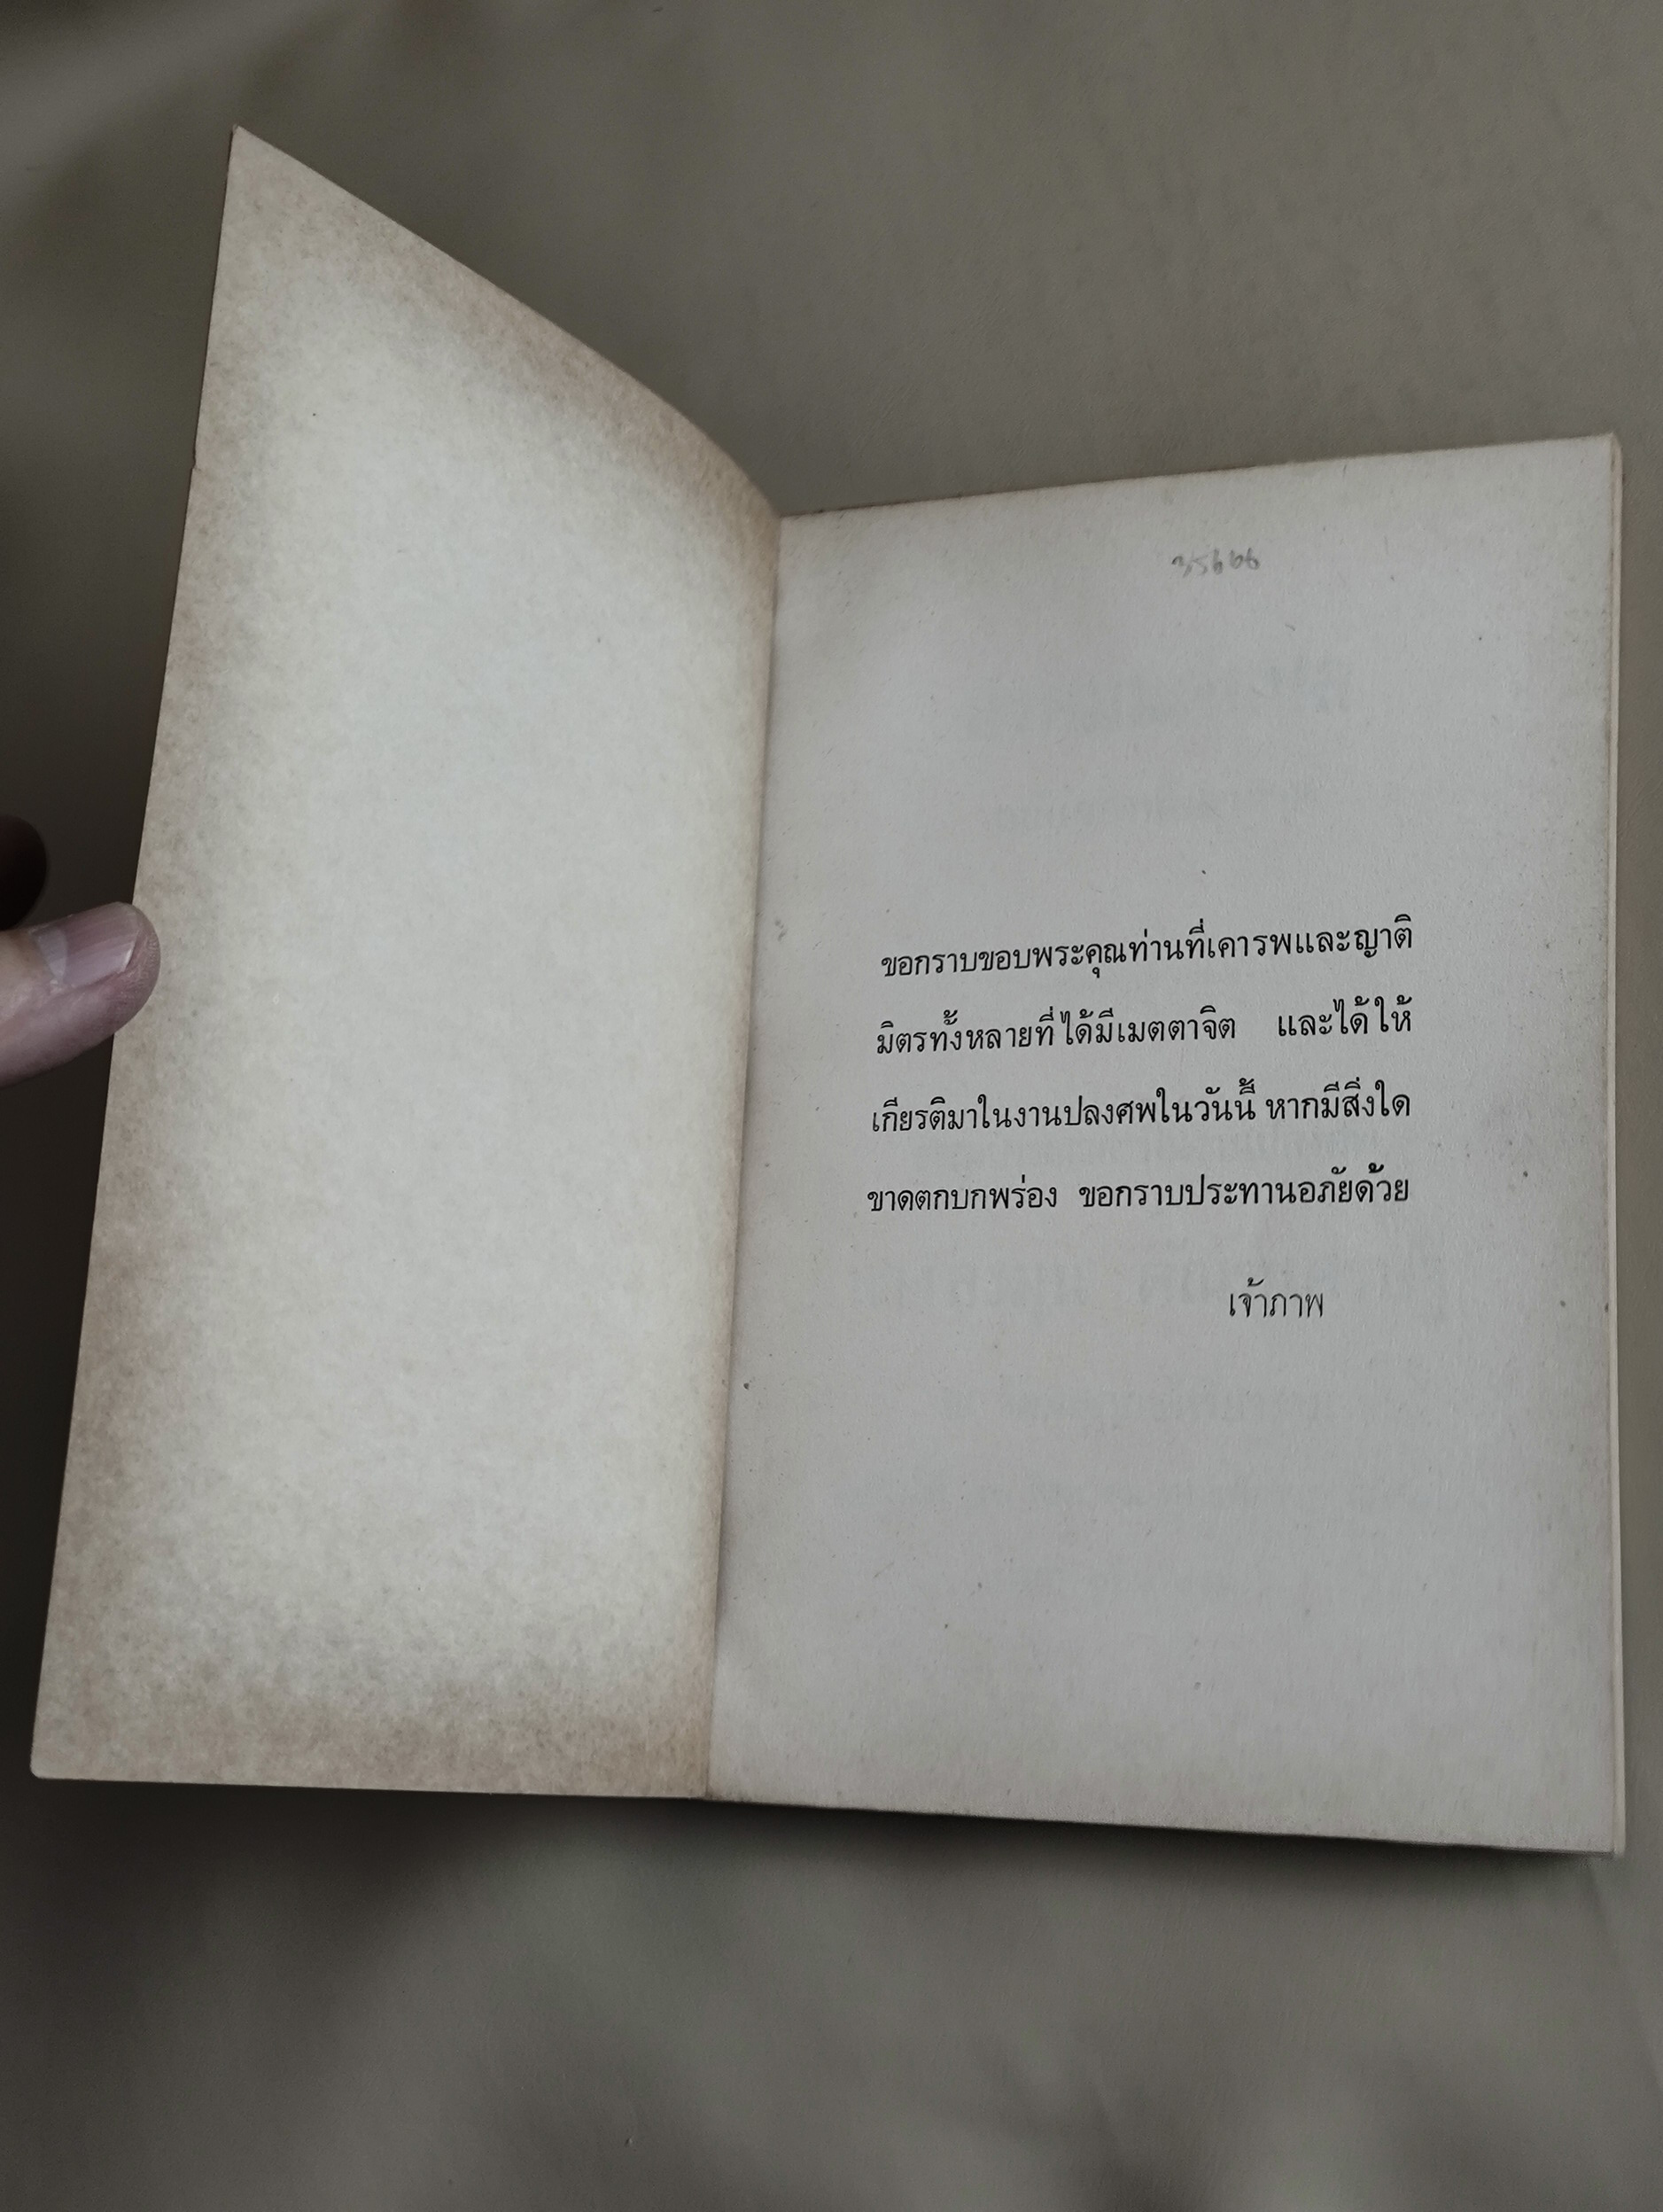 35666
ขอกราบขอบพระคุณท่านที่เคารพและญาติ
มิตรทั้งหลายที่ได้มีเมตตาจิต และได้ให้
เกียรติมาในงานปลงศพในวันนี้ หากมีสิ่งใด
ขาดตกบกพร่อง ขอกราบประทานอภัยด้วย
เจ้าภาพ